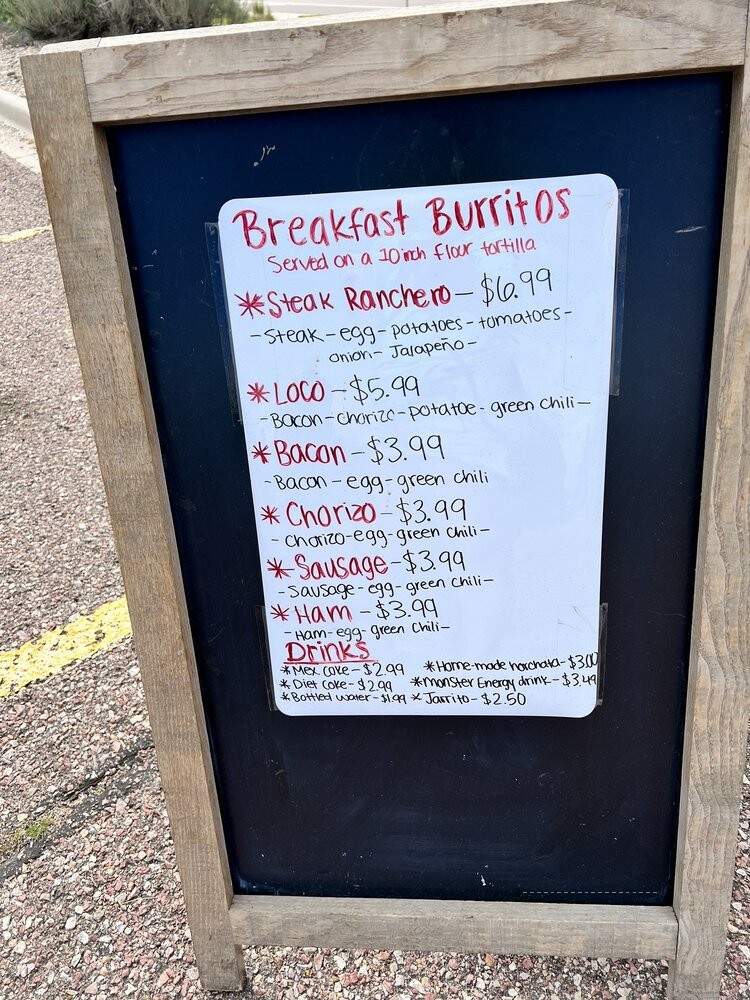 Breakfast Burritos
Served on a 10 inch flour tortilla
*Steak Ranchero - $6.99
- Steak - egg - potatoes - tomatoes -
onion - Jalapeño -
*Loco - $5.99
- Bacon - chorizo - potatoe - green chili -
*Bacon - $3.99
- Bacon - egg - green chili
*Chorizo - $3.99
- chorizo - egg - green chili -
*Sausage - $3.99
- Sausage - egg - green chili -
*Ham - $3.99
- Ham - egg - green chili -
Drinks
*Mex coke - $2.99 *Home-made horchata - $3.00
*Diet coke - $2.99 *Monster Energy drink - $3.49
*Bottled water - $1.99 *Jarrito - $2.50